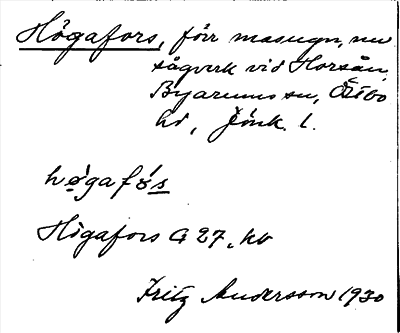 Högafors, förr masugn, nu
sågverk vid Horsån,
Byarums sn, Östbo
hd, Jönk. l.
högafo̊s
Högafors G 27, kb
Fritz Andersson 1930